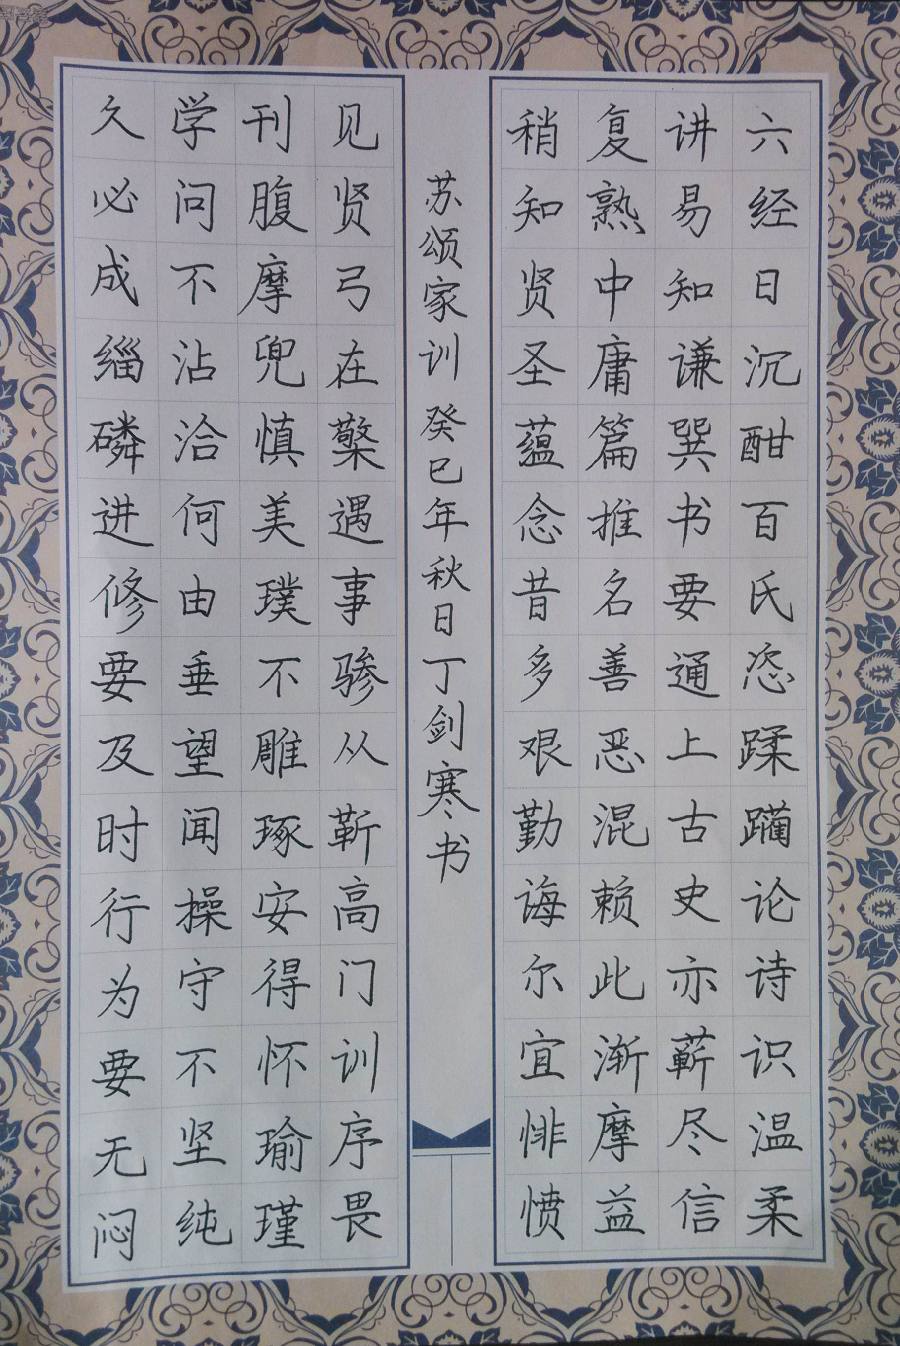 六经日沉酣百氏恣蹂躏论诗识温柔
讲易知谦巽书要通上古史亦蕲尽信
复熟中庸篇推名善恶混赖此渐摩益
稍知贤圣蕴念昔多艰勤诲尔宜悱愤
苏颂家训 癸巳年秋日丁剑寒书
见贤弓在檠遇事骖从靳高门训序畏
刊腹摩兜慎美璞不雕琢安得怀瑜瑾
学问不沾洽何由垂望闻操守不坚纯
久必成缁磷进修要及时行为要无闷